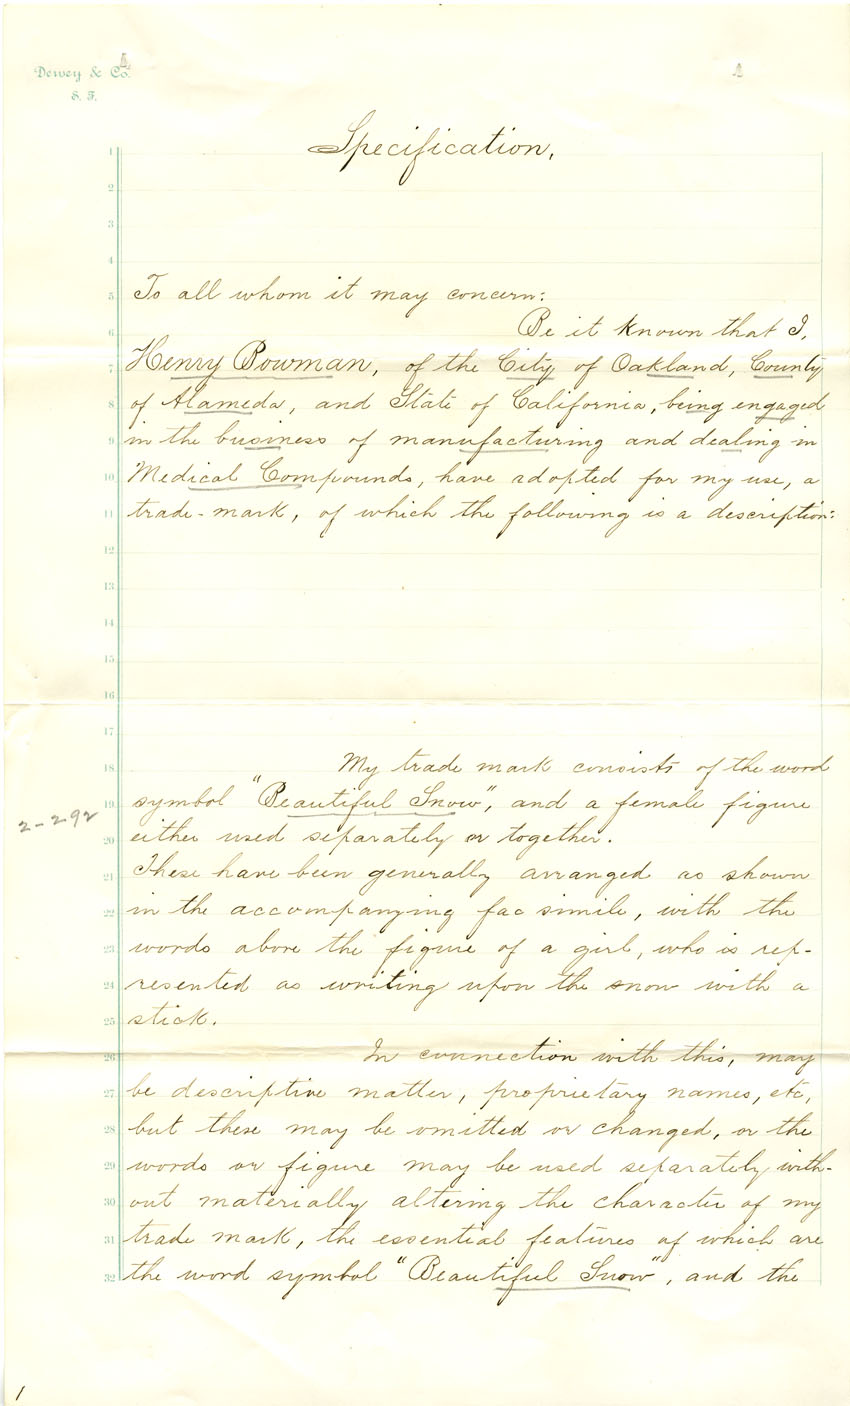 Dewey & Co.
S. F.
Specification.
1
2
3
4
5 To all whom it may concern:
6 Be it known that I,
7 Henry Bowman, of the City of Oakland, County
8 of Alameda, and State of California, being engaged
9 in the business of manufacturing and dealing in
10 Medical Compounds, have adopted for my use, a
11 trade-mark, of which the following is a description:
12
13
14
15
16
17
18 My trade mark consists of the word
19 symbol "Beautiful Snow", and a female figure
2-292
20 either used separately or together.
21 These have been generally arranged as shown
22 in the accompanying fac simile, with the
23 words above the figure of a girl, who is rep-
24 resented as writing upon the snow with a
25 stick.
26 In connection with this, may
27 be descriptive matter, proprietary names, etc,
28 but these may be omitted or changed, or the
29 words or figure may be used separately with-
30 out materially altering the character of my
31 trade mark, the essential features of which are
32 the word symbol "Beautiful Snow", and the
1